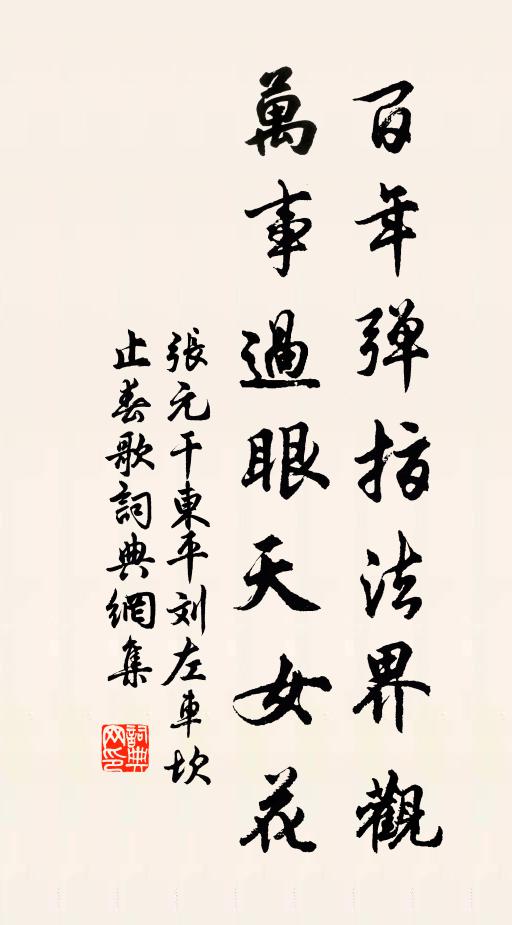 百年弹指法界觀
萬事過眼天女花
張元干東平刘左車坎
止春歌詞典網集
詞典
网印